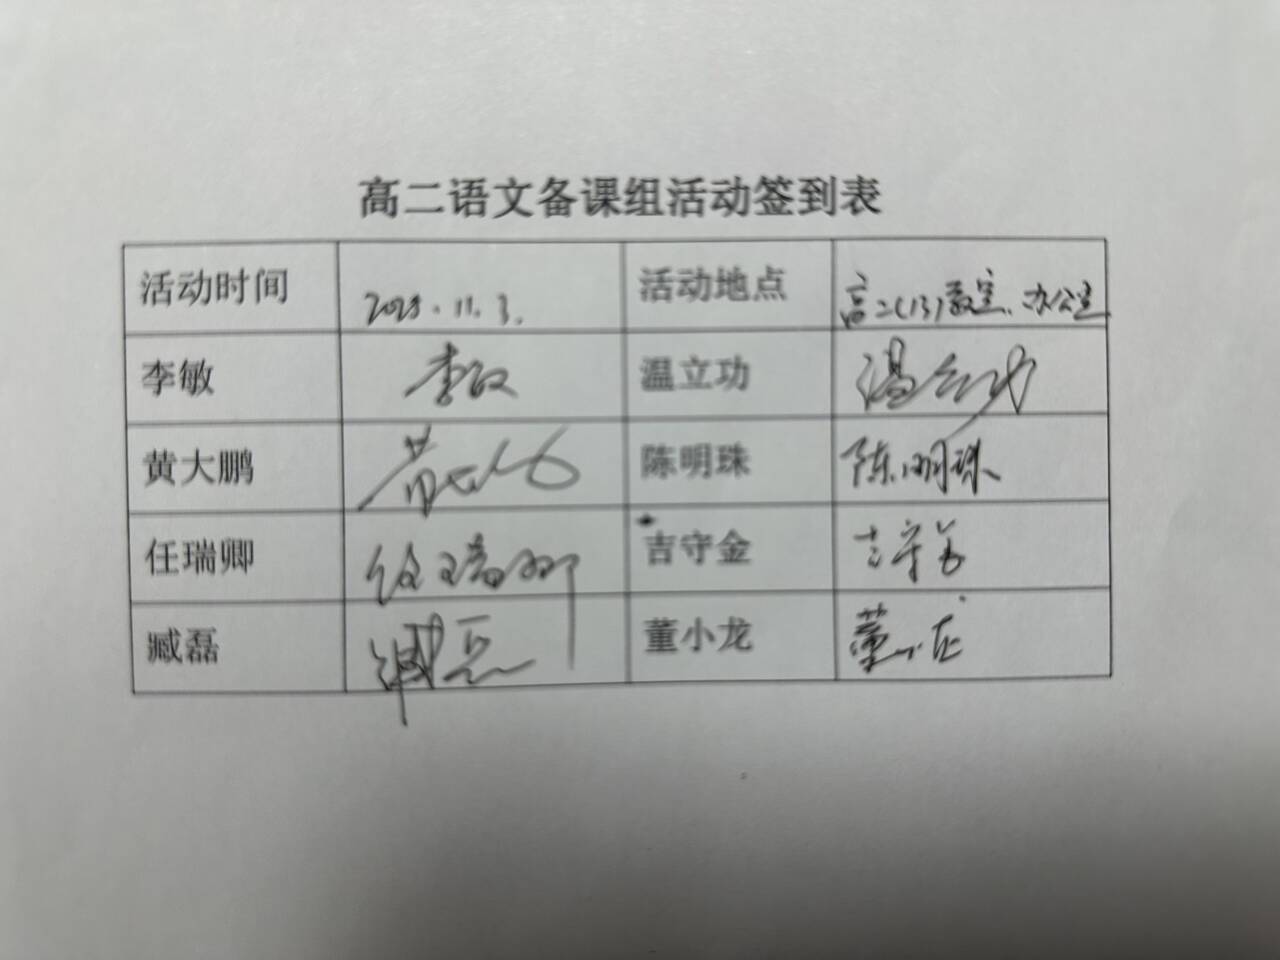 高二语文备课组活动签到表
活动时间 2023.11.3. 活动地点 高二(13)教室、办公室
李敏 李敏 温立功 温立功
黄大鹏 黄大鹏 陈明珠 陈明珠
任瑞卿 任瑞卿 吉守金 吉守金
臧磊 臧磊 董小龙 董小龙